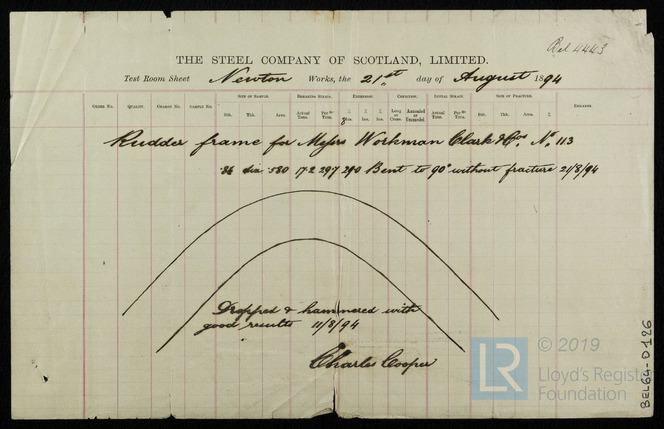 Bel 4443
THE STEEL COMPANY OF SCOTLAND, LIMITED.
Test Room Sheet Newton Works, the 21st day of August 1894
SIZE OF SAMPLE. BREAKING STRAIN. EXTENSION. CONDITION. INITIAL STRAIN. SIZE OF FRACTURE.
ORDER NO. QUALITY. CHARGE NO. SAMPLE NO. Bth. Thk. Area. Actual Tons. Per Sq. In. Tons. % 8 Ins. % Ins. % Ins. Long or Cross. Annealed or Unannealed Actual Tons. Per Sq. In. Tons. Bth. Thk. Area. % REMARKS.
Rudder frame for Messrs Workman Clark & Cos. No. 113
.86 dia .580 17.2 29.7 29.0 Bent to 90° without fracture 21/8/94
Dropped & hammered with
good results 11/8/94
Charles Cooper
© 2019
LR Lloyd's Register
Foundation
BEL64-0126